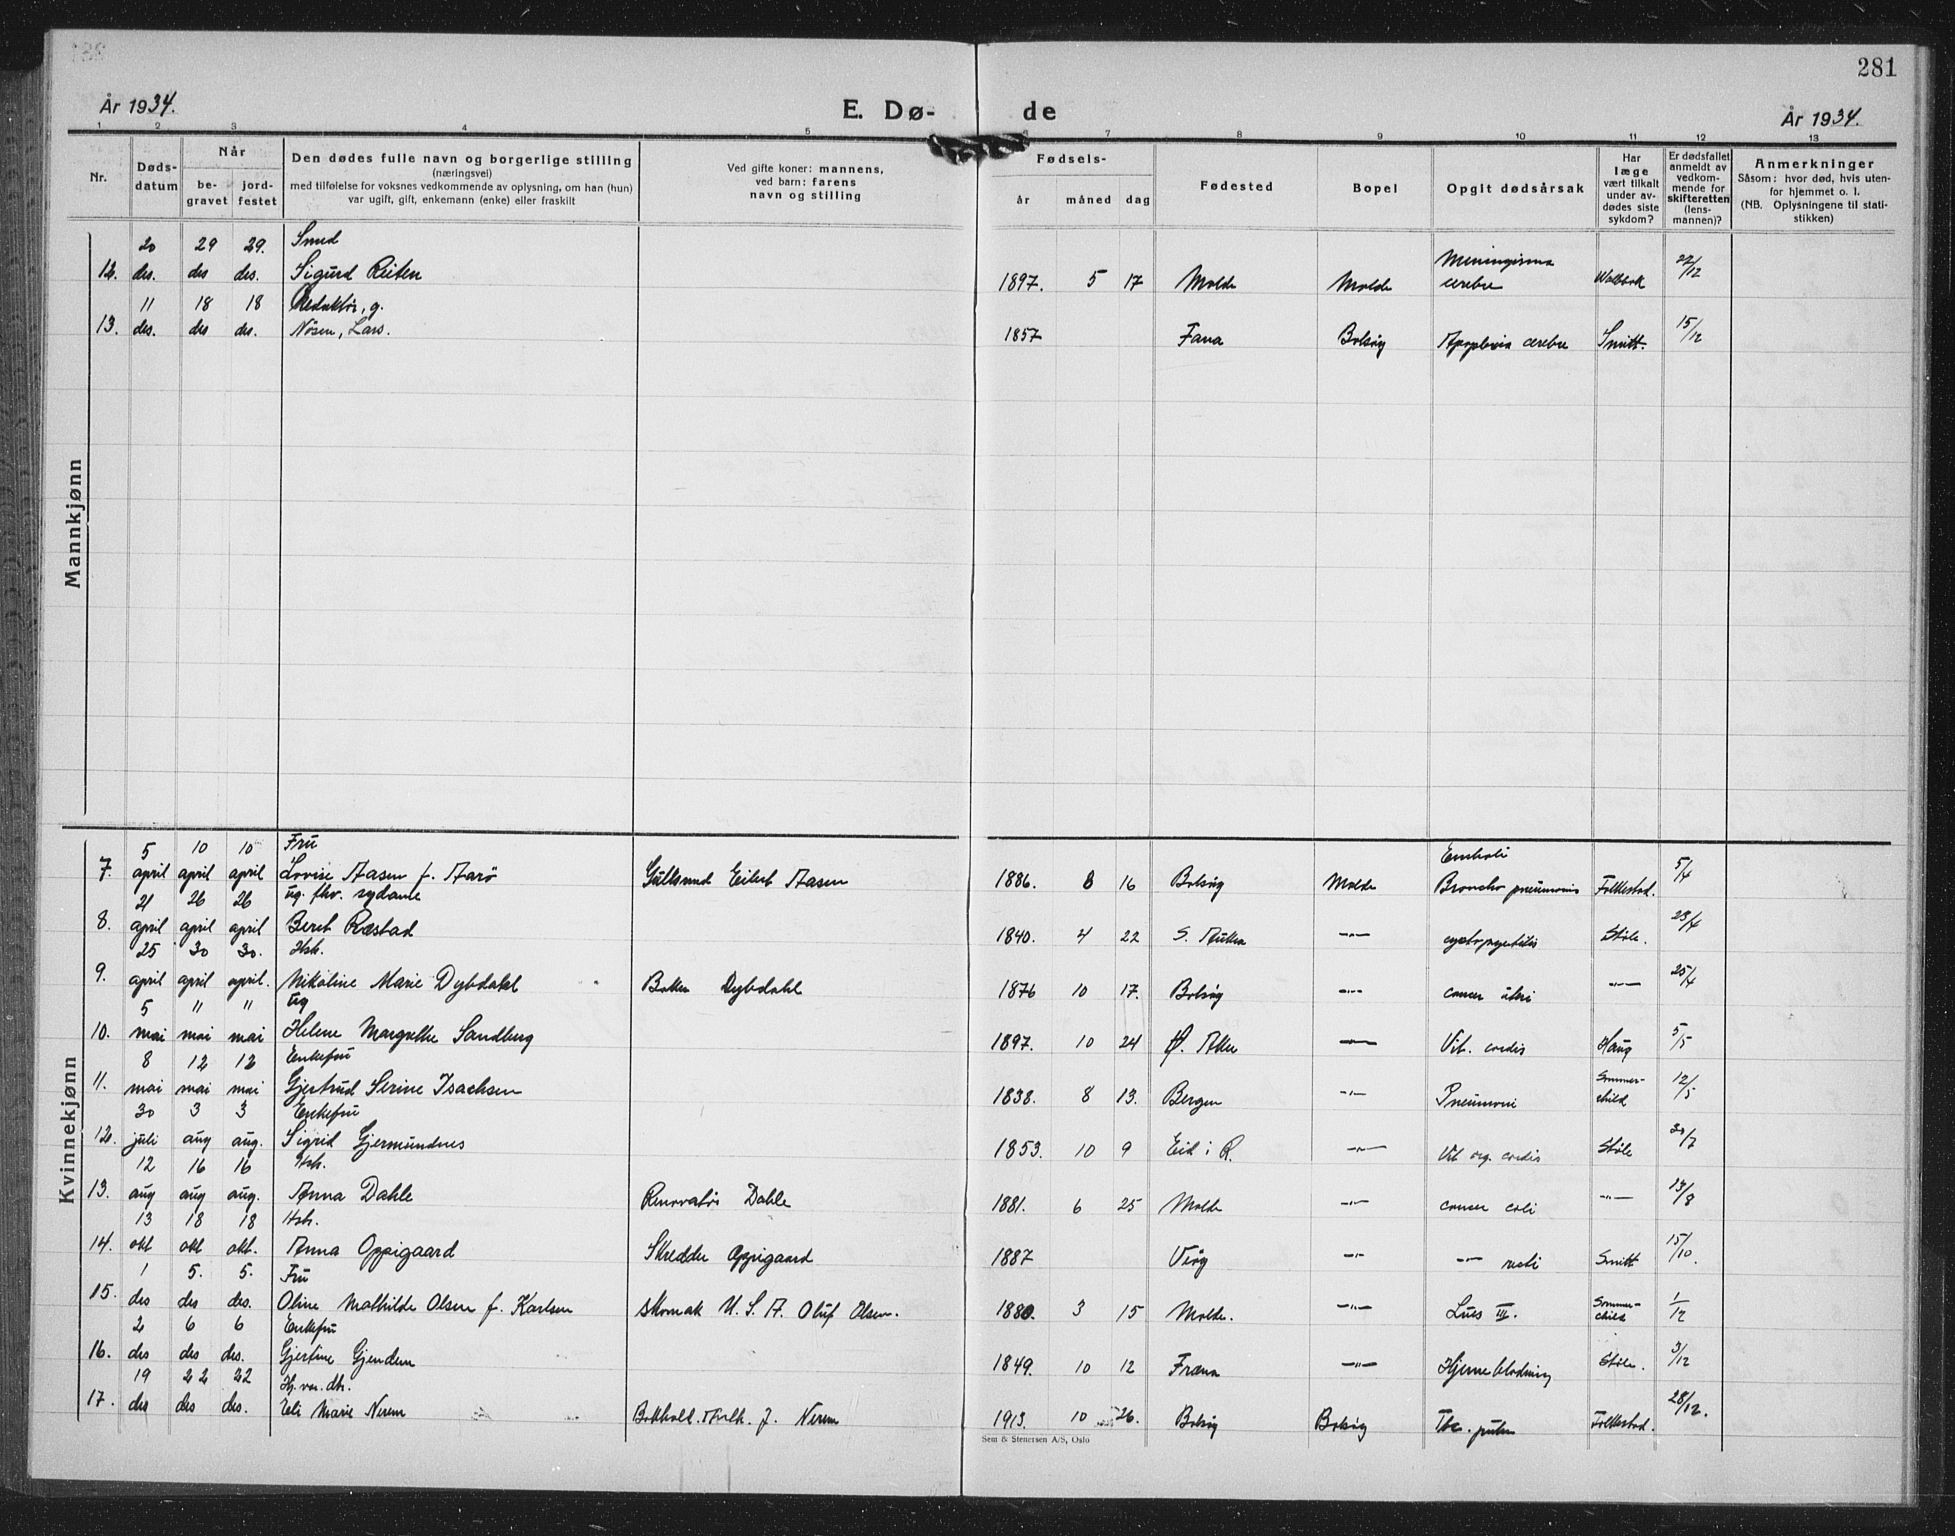 281
År 1934.
E. Dø- de
År 1934.
1 2 3 4 5 6 7 8 9 10 11 12 13
Nr.
Døds-
datum
Når
be-
gravet
jord-
festet
Den dødes fulle navn og borgerlige stilling
(næringsvei)
med tilføielse for voksnes vedkommende av oplysning, om han (hun)
var ugift, gift, enkemann (enke) eller fraskilt
Ved gifte koner: mannens,
ved barn: farens
navn og stilling
Fødsels-
år måned dag
Fødested
Bopel
Opgit dødsårsak
Har
læge
vært tilkalt
under av-
dødes siste
sykdom?
Er dødsfallet
anmeldt av
vedkom-
mende for
skifteretten
(lens-
mannen)?
Anmerkninger
Såsom: hvor død, hvis uten-
for hjemmet o. l.
(NB. Oplysningene til stati-
stikken)
Mannkjønn
20 29 29. Smed
12. des. des des. Sigurd Reiten 1897. 5 17 Molde Molde Meningisma cerebre 22/12
11 18 18 Redaktør, g.
13. des. des des. Nøsen, Lars. 1857 Fana Bolsøy Apoplexia cerebre Smitt. 15/12
Kvinnekjønn
5 10 10 Fru
7. april april april Lovise Aasen f. Aarö Gullsmed Eilert Aasen 1886. 8 16 Bolsøy Molde Emboli Broncho pneumonis Folkestad. 5/4
21 26 26 ug. fhv. sydame
8. april april april Berit Ræstad 1840. 4 22 S. Aukra —"— Støle. 23/4
25 30 30. Hsk.
9. april april april. Nikoline Marie Dybdahl Baker Dybdahl 1876 10 17. Bolsøy —"— cancer uteri —"— 25/4
5 " " ug
10. mai mai mai Helene Margrethe Sandberg 1897. 10 24 Ø. Aker —"— Vit. cordis Haug 5/5
8 12 12 Enkefru
11. mai mai mai Gjertrud Serine Isachsen 1838. 8 13. Bergen —"— Pneumoni Sommer-child 12/5
30 3 3 Enkefru
12. juli aug aug. Sigrid Gjermundnes 1853. 10 9 Eid i R. —"— Vit org. cordis Støle 30/7
12 16 16 Hsk.
13. aug aug aug. Anna Dahle Renovatør Dahle 1881. 6 25 Molde —"— cancer coli —"— 13/8
13 18 18 Hsk.
14. okt okt okt. Anna Oppigaard Skredder Oppigaard 1887 Vevg —"— —"— recti Smitt 15/10.
1 5. 5. Fru
15. des des des. Oline Mathilde Olsen f. Karlsen Skomak U. S. A. Oluf Olsen. 1880. 3 15 Molde. —"— Lues III. Sommer-child 1/12
2 6 6 Enkefru
16. des des des. Gjertine Gjendem 1849. 10 12 Fræna —"— Hjerneblødning Støle. 3/12
19 22 22 Hj. vær. dtr.
17. des des des. Eli Marie Nerem Bokhold. J. Nerem 1913. 10 26. Bolsøy Bolsøy Tbc. pulm Folkestad. 28/12.
Sem & Stenersen A/S, Oslo